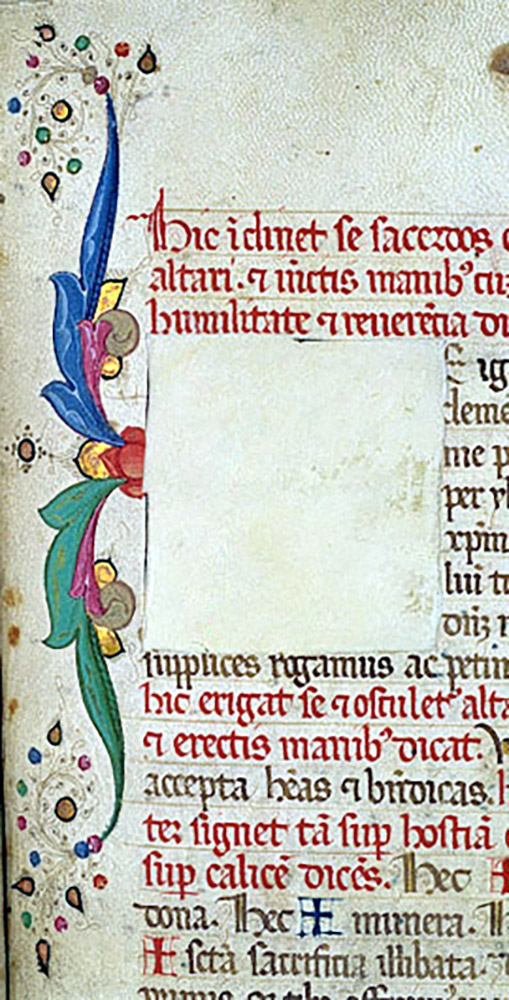 Hic īclinet se sacerdos
altari. ⁊ iūctis manibꝰ cū
humilitate ⁊ reuerētia
ig
cleme
me p
per
xpm
lui
supplices rogamus ac petim
hic erigat se ⁊ osculetꝰ alta
⁊ erectis manibꝰ dicat.
accepta hēas ⁊ bn̄dicas.
ter signet tā sup hostiā
sup calicē dicēs. Hec ✠
dona. Hec ✠ munera. H
✠ sctā sacrificia illibata.